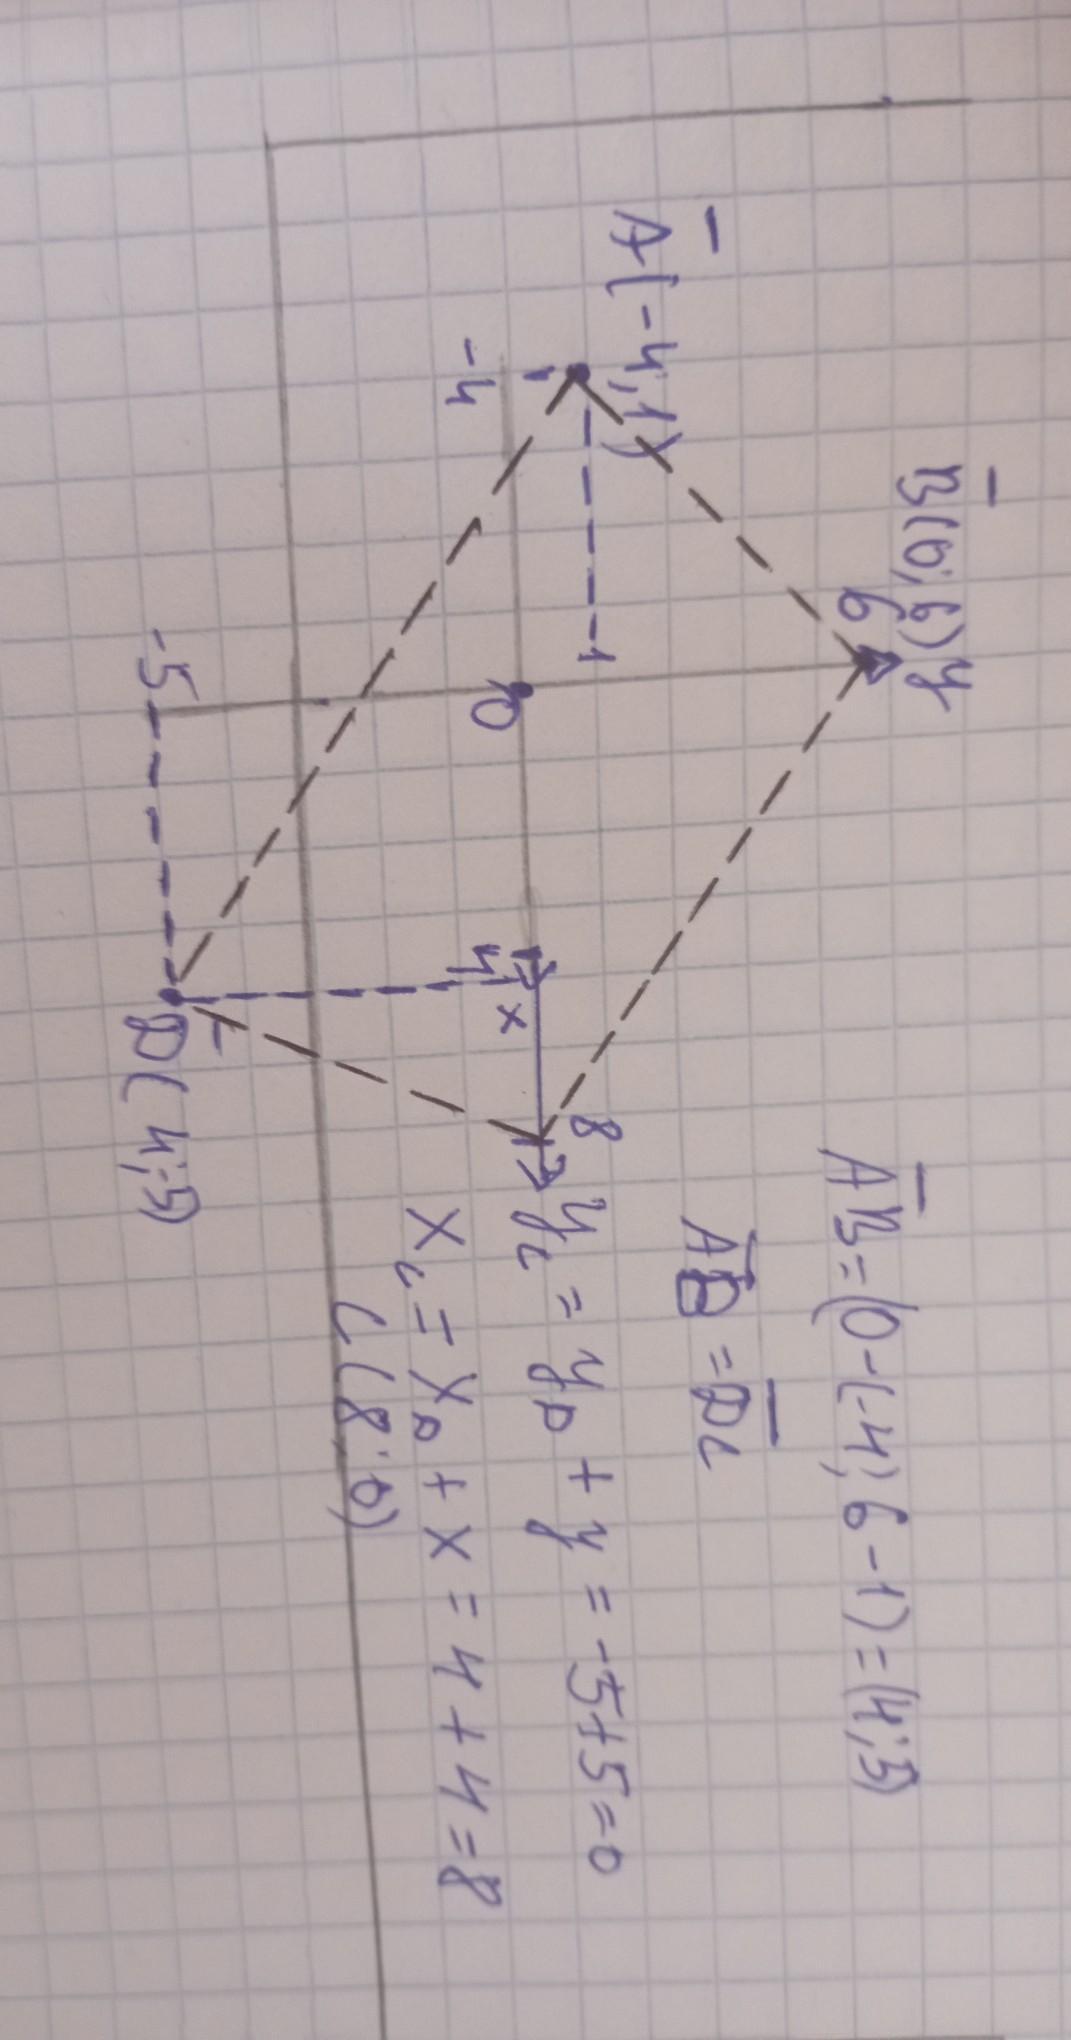 B(0; 6) y
6
A(-4; 1)
1
-4
0
4
x
8
-5
D(4;-5)
AB=(0-(-4; 6-1)=(4;5)
AB=DC
yc=yD+y=-5+5=0
xc=xD+x=4+4=8
C(8;0)